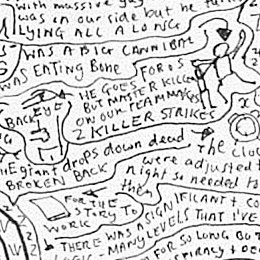 with massive gu
was on our side but he turn
LYING ALL ALONG
WAS A BIG CANNIBAL
WAS EATING BONE
FOR IS
HE GOES
BUT MASTER KILLER
ON OUR TEAM MAKES
2 KILLER STRIKES
BACK EYE
HE GIANT drops down dead
BROKEN BACK
The clou
were adjusted t
right so needed to
them
FOR THE
STORY TO
WORK
WAS A SIGNIFICANT + CO
THERE
MANY LEVELS THAT I'VE
LOGIC
WAS HIM FOR SO LONG BUT